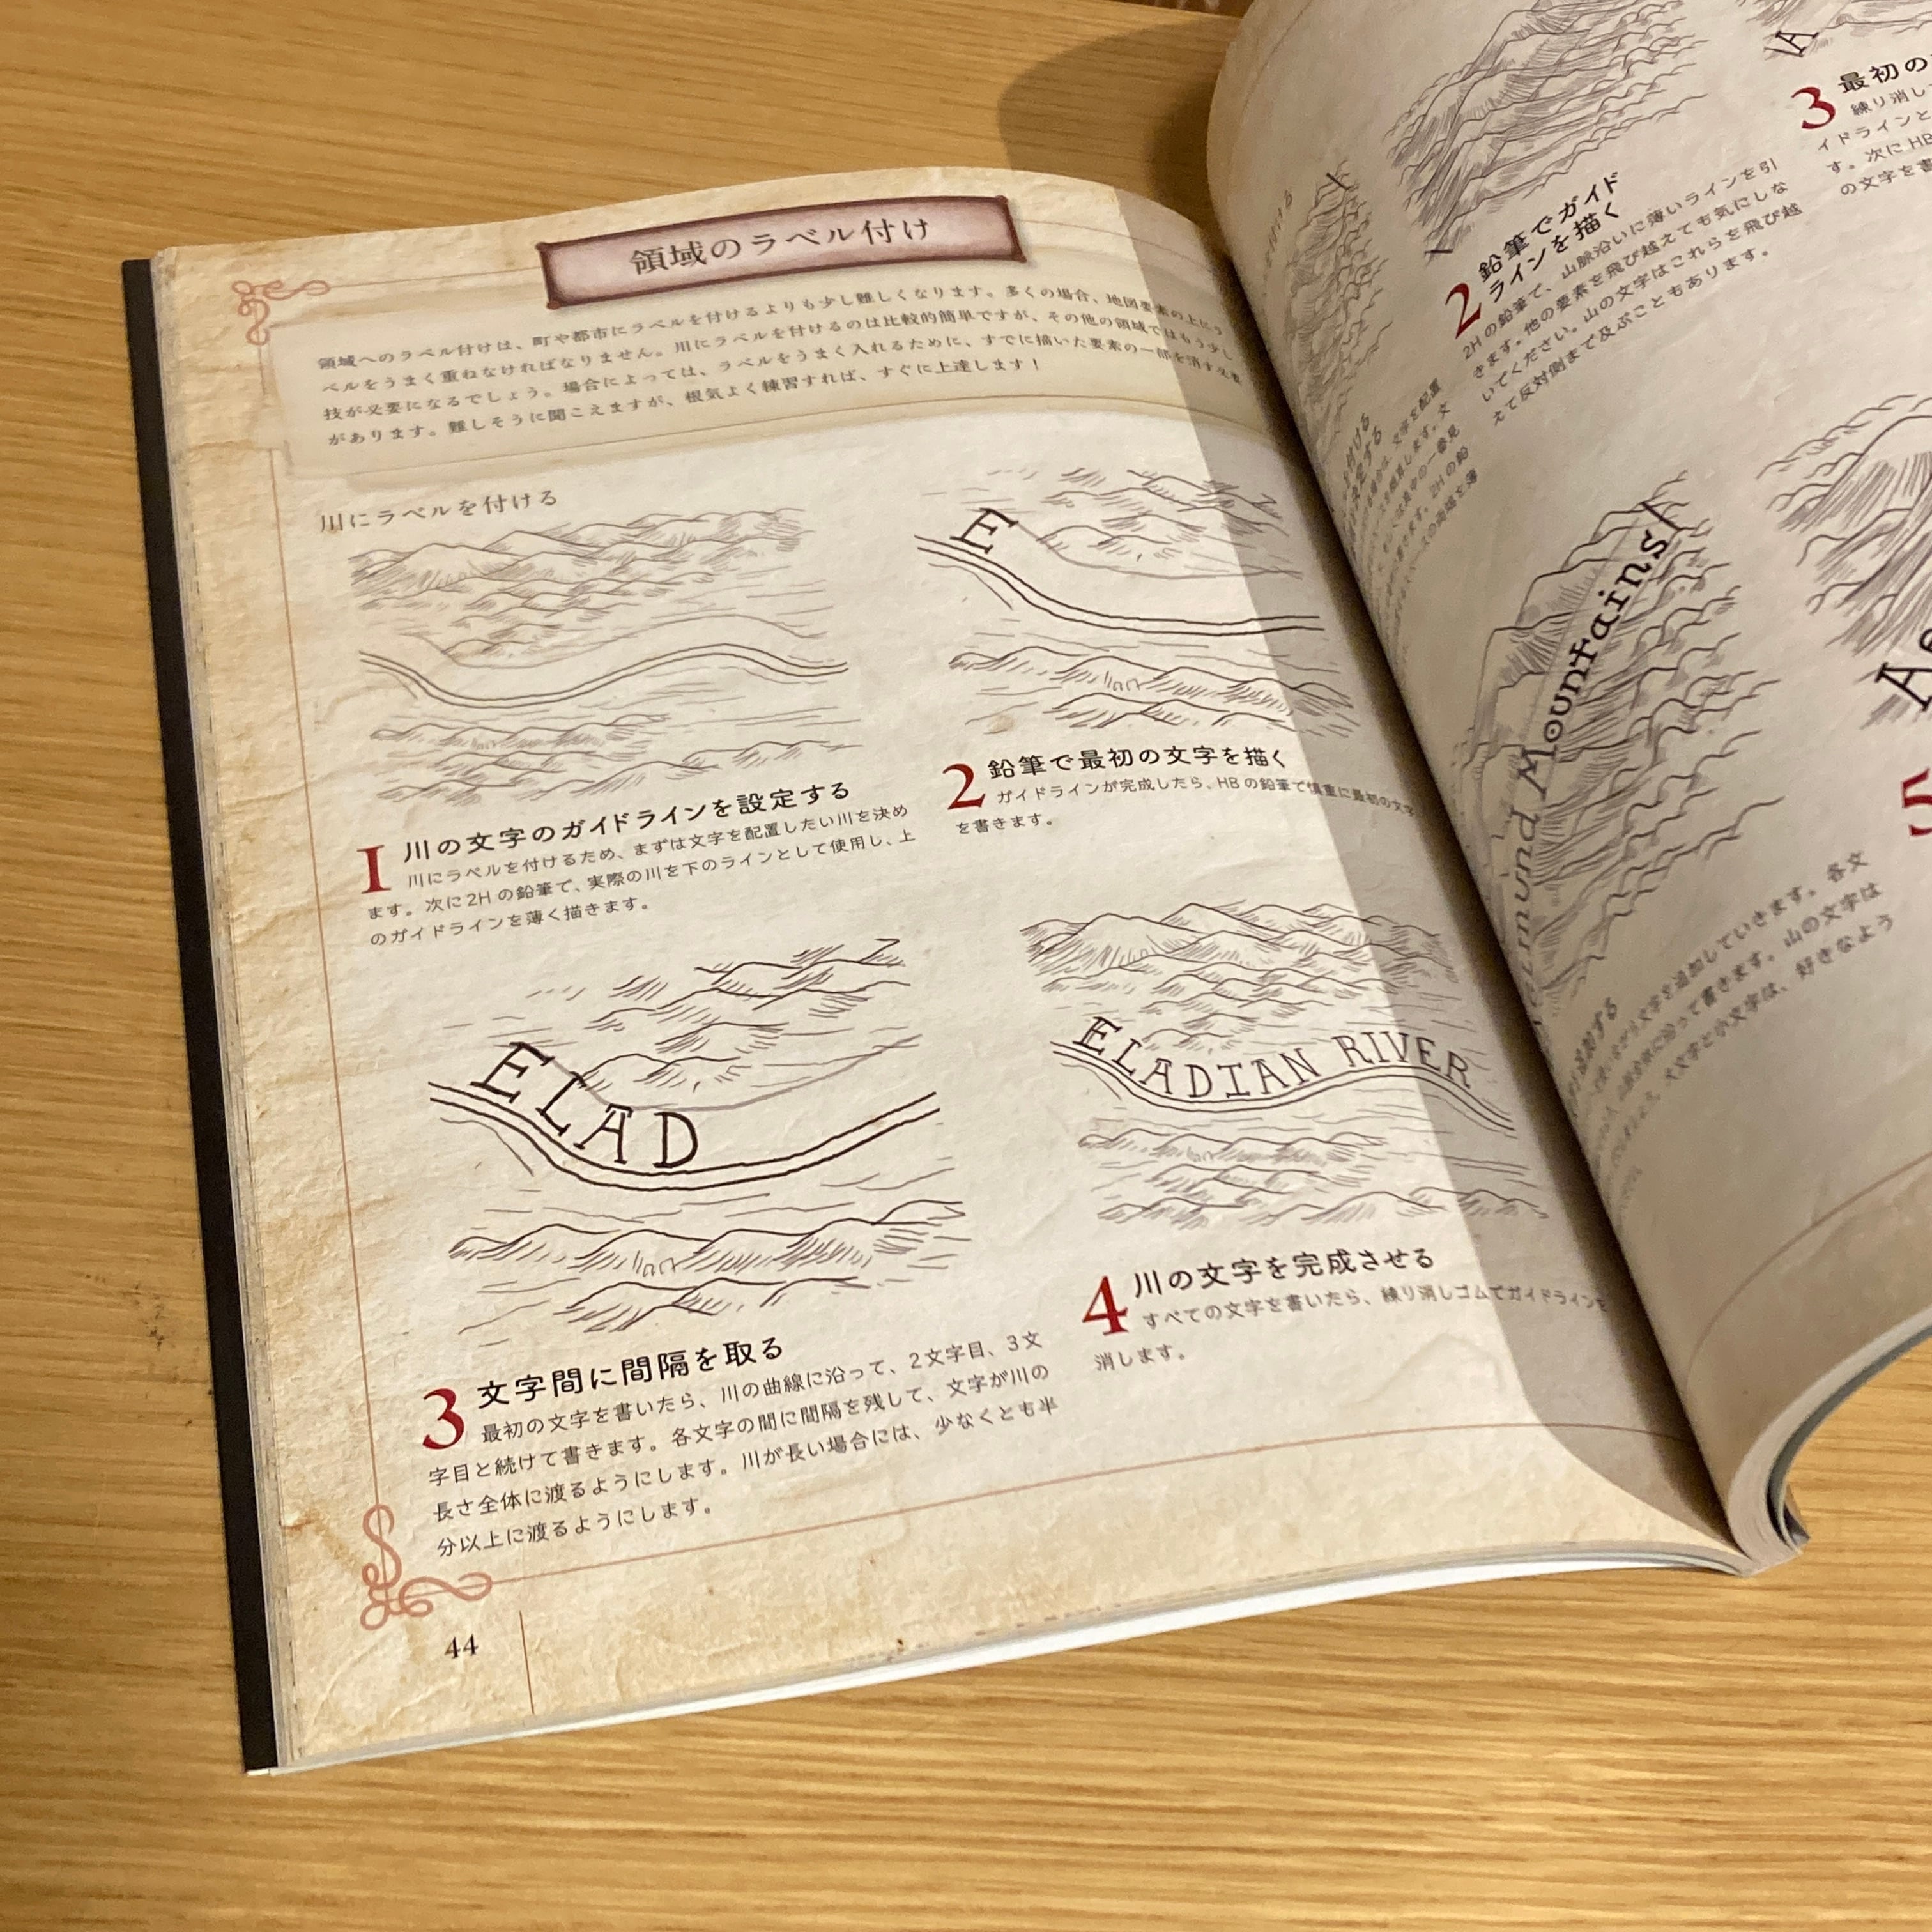 領域のラベル付け
領域へのラベル付けは、町や都市にラベルを付けるよりも少し難しくなります。多くの場合、地図要素の上にラ
ベルをうまく重ねなければなりません。川にラベルを付けるのは比較的簡単ですが、その他の領域ではもう少し
技が必要になるでしょう。場合によっては、ラベルをうまく入れるために、すでに描いた要素の一部を消す必要
があります。難しそうに聞こえますが、根気よく練習すれば、すぐに上達します！
川にラベルを付ける
1 川の文字のガイドラインを設定する
川にラベルを付けるため、まずは文字を配置したい川を決め
ます。次に2Hの鉛筆で、実際の川を下のラインとして使用し、上
のガイドラインを薄く描きます。
E
2 鉛筆で最初の文字を描く
ガイドラインが完成したら、HBの鉛筆で慎重に最初の文字
を書きます。
ELAD
3 文字間に間隔を取る
最初の文字を書いたら、川の曲線に沿って、2文字目、3文
字目と続けて書きます。各文字の間に間隔を残して、文字が川の
長さ全体に渡るようにします。川が長い場合には、少なくとも半
分以上に渡るようにします。
ELADIAN RIVER
4 川の文字を完成させる
すべての文字を書いたら、練り消しゴムでガイドラインを
消します。
44
2 鉛筆でガイド
ラインを描く
2Hの鉛筆で、山脈沿いに薄いラインを引
きます。他の要素を飛び越えても気にしな
いでください。山の文字はこれらを飛び越
えて反対側まで及ぶこともあります。
A
3 最初の
練り消し
イドラインと
す。次にHB
の文字を書
Mountains
文字を追加していきます。各文
に沿って書きます。山の文字は
大文字と小文字は、好きなよう
5